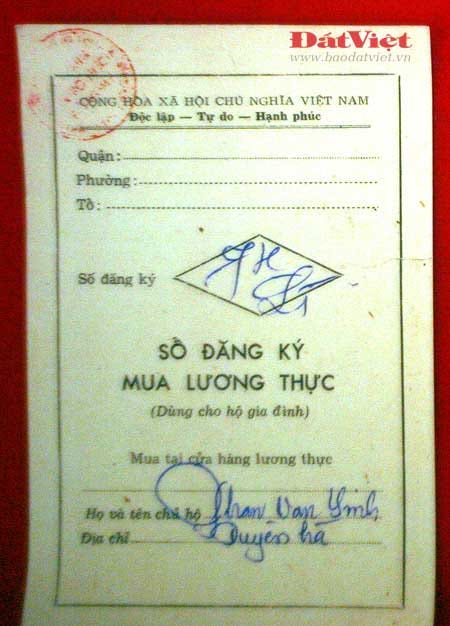 ĐẤTVIỆT
www.baodatviet.vn
CỘNG HÒA XÃ HỘI CHỦ NGHĨA VIỆT NAM
Độc lập — Tự do — Hạnh phúc
Quận:
Phường:
Tổ:
Số đăng ký
SỔ ĐĂNG KÝ
MUA LƯƠNG THỰC
(Dùng cho hộ gia đình)
Mua tại cửa hàng lương thực
Họ và tên chủ hộ Phan Văn
Địa chỉ Duyên Hà